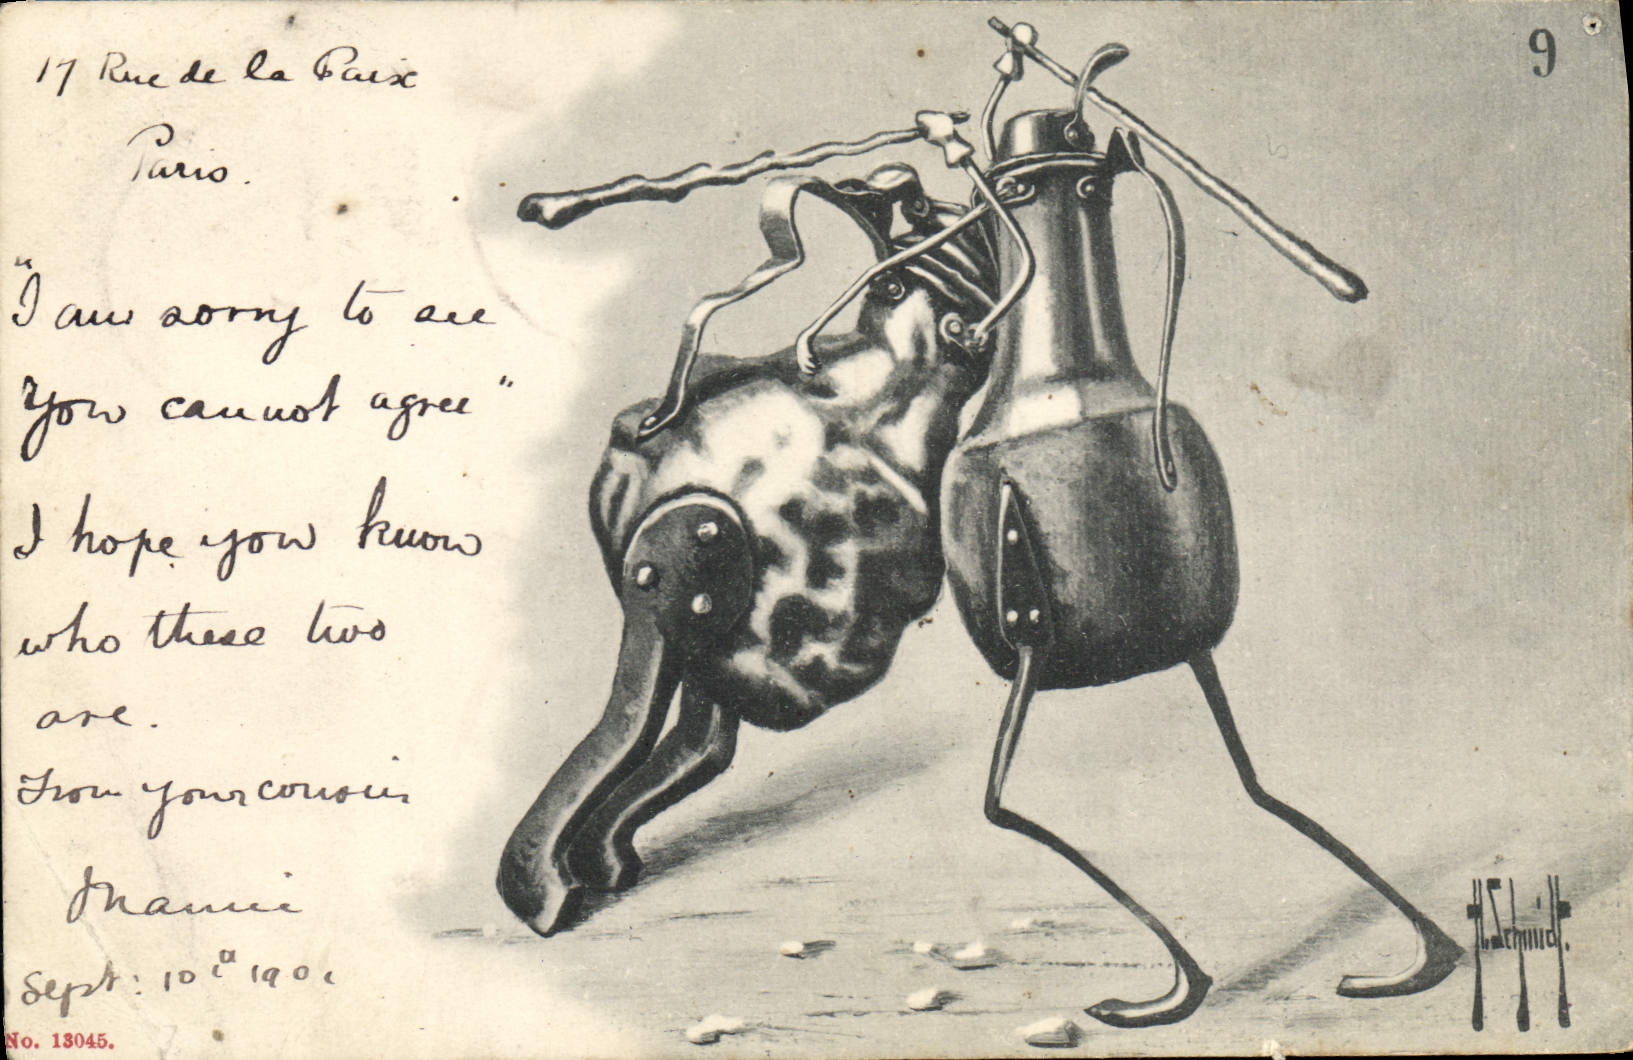 17 Rue de la Paix
Paris.
"I am sorry to see
you cannot agree"
I hope you know
who these two
are.
From your cousin
Mamie
Sept: 10th 1901
No. 13045.
9
H. Schmidt.